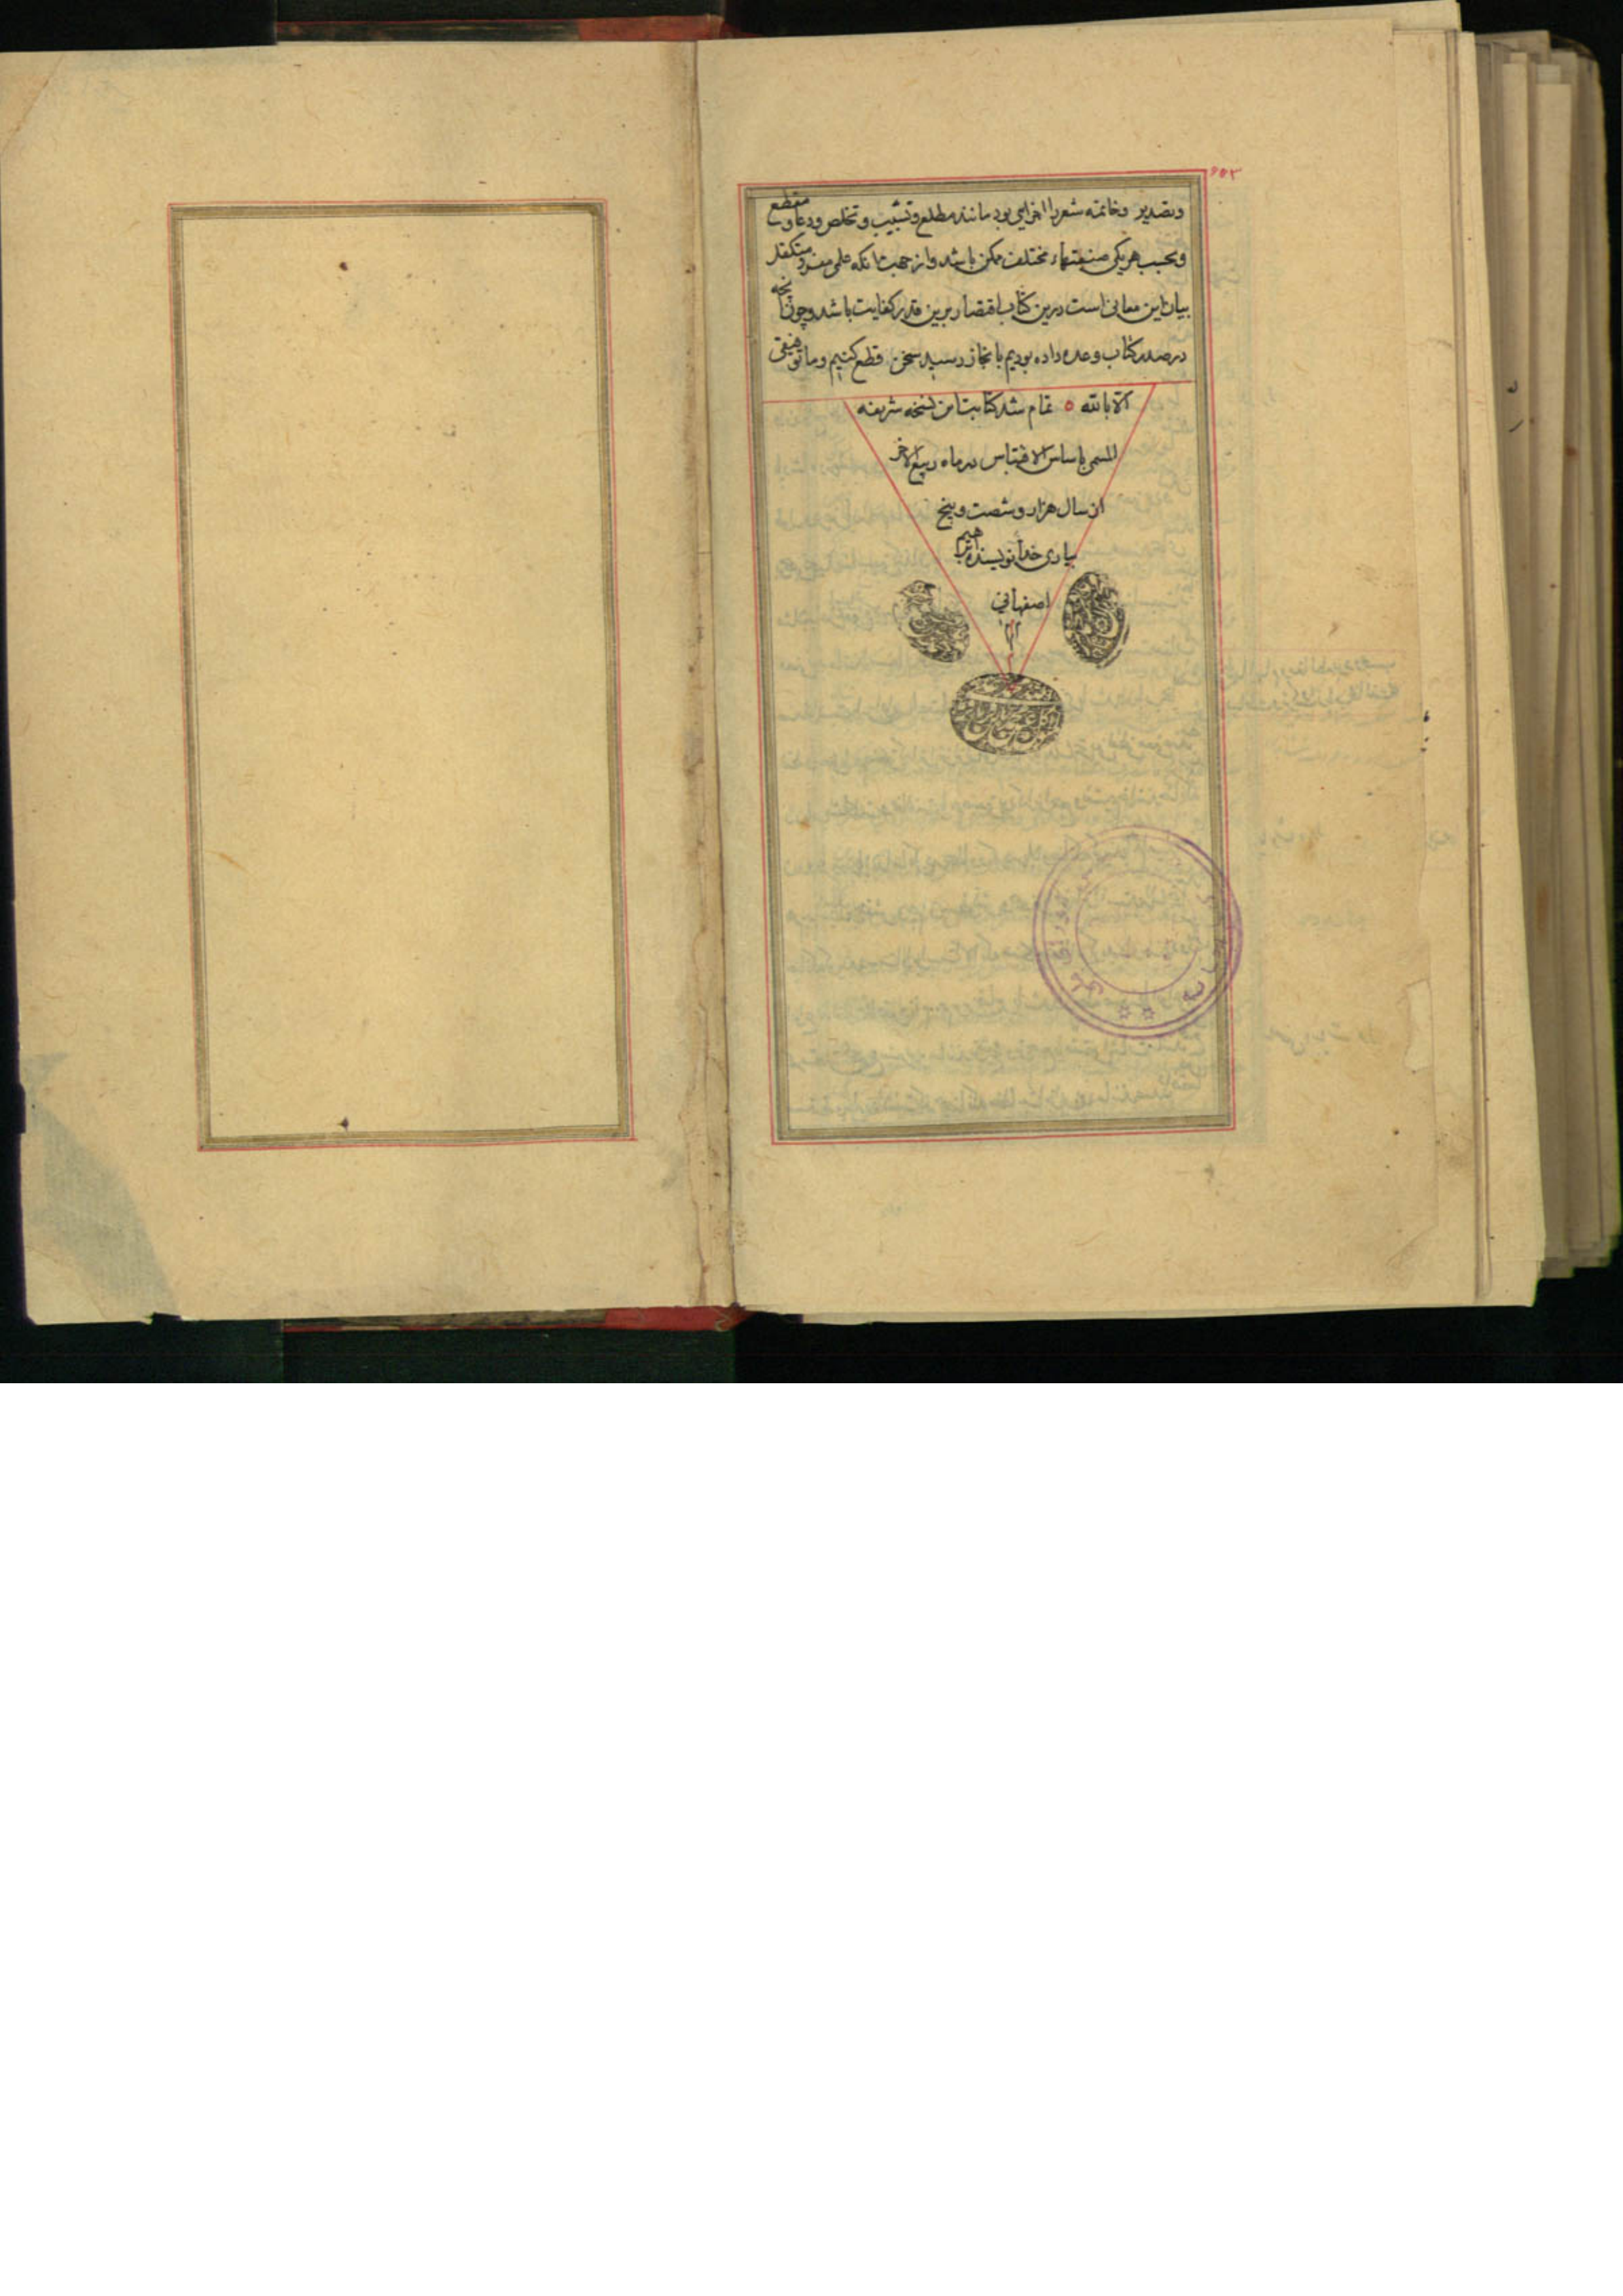 ۶۵۳
وتصدیر وخاتمه شعر را اجزایی بود مانند مطلع وتشبیب وتخلص ودعا ومقطع
وبحسب هریکی صنعتهاء مختلف ممکن باشد واز جهت انکه علمی مفرد متکفل
بیان این معانی است درین کتاب اقتصار برین قدر کفایت باشد وچون انچه
در صدر کتاب وعده داده بودیم بانجاز رسید سخن قطع کنیم وما توفیقی
الا بالله ۵ تمام شد کتابت این نسخه شریفه
المسمی باساس الاقتباس در ماه ربیع الاخر
از سال هزار وشصت وپنج
بیاری خدا نویسنده ابراهیم
اصفهانی